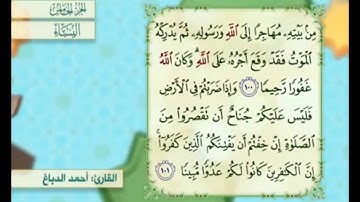 الجزء الخامس
النساء
مِنْ بَيْتِهِۦ مُهَاجِرًا إِلَى ٱللَّهِ وَرَسُولِهِۦ ثُمَّ يُدْرِكْهُ
ٱلْمَوْتُ فَقَدْ وَقَعَ أَجْرُهُۥ عَلَى ٱللَّهِ ۗ وَكَانَ ٱللَّهُ
غَفُورًا رَّحِيمًا ١٠٠ وَإِذَا ضَرَبْتُمْ فِى ٱلْأَرْضِ
فَلَيْسَ عَلَيْكُمْ جُنَاحٌ أَن تَقْصُرُوا۟ مِنَ
ٱلصَّلَوٰةِ إِنْ خِفْتُمْ أَن يَفْتِنَكُمُ ٱلَّذِينَ كَفَرُوٓا۟ ۚ
إِنَّ ٱلْكَٰفِرِينَ كَانُوا۟ لَكُمْ عَدُوًّا مُّبِينًا ١٠١
القارئ: أحمد الدباغ